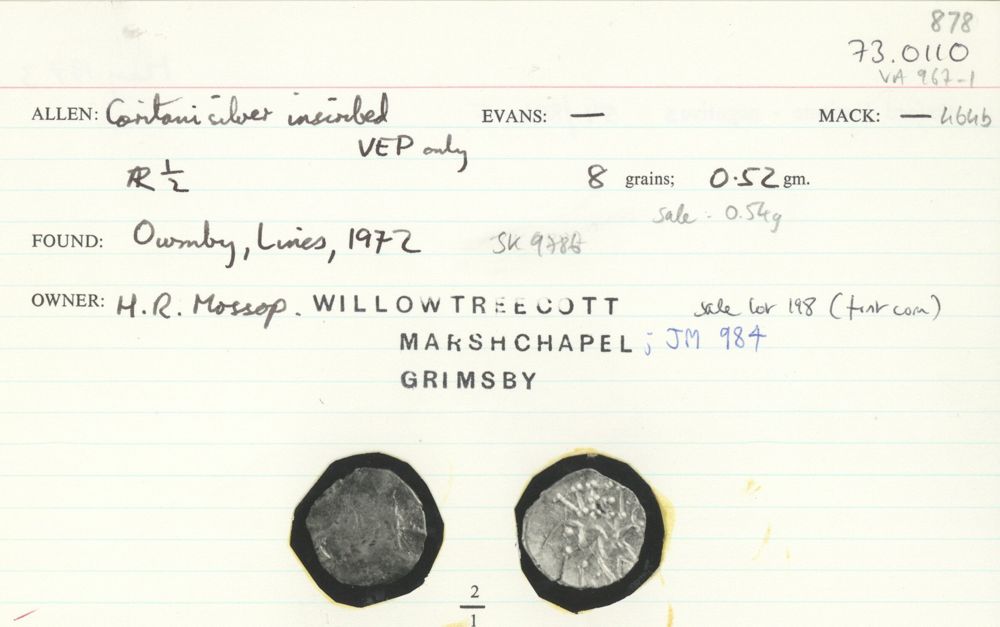 878
73.0110
VA 967-1
ALLEN: Coritani silver inscribed EVANS: — MACK: — 464b
VEP only
AR ½ 8 grains; 0.52 gm.
sale: 0.54g
FOUND: Owmby, Lincs, 1972 SK 9786
OWNER: H.R. Mossop. WILLOWTREE COTT sale lot 198 (first coin)
MARSHCHAPEL ; JM 984
GRIMSBY
2
1